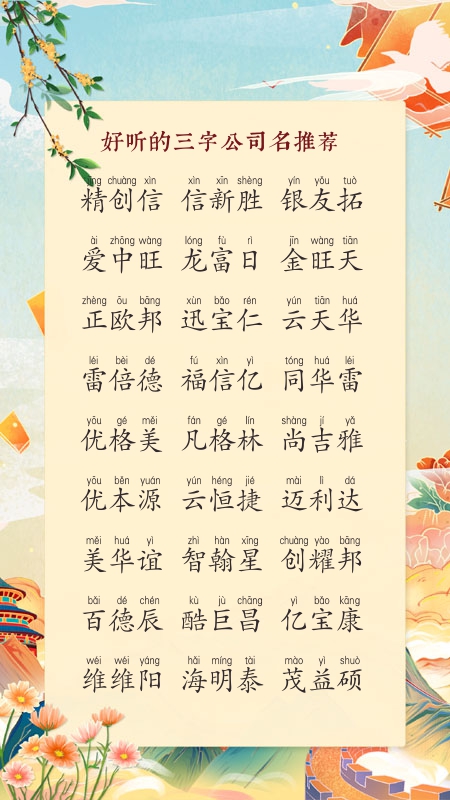 好听的三字公司名推荐
jīng chuàng xìn xìn xīn shèng yín yǒu tuò
精创信 信新胜 银友拓
ài zhōng wàng lóng fù rì jīn wàng tiān
爱中旺 龙富日 金旺天
zhèng ōu bāng xùn bǎo rén yún tiān huá
正欧邦 迅宝仁 云天华
léi bèi dé fú xìn yì tóng huá léi
雷倍德 福信亿 同华雷
yōu gé měi fán gé lín shàng jí yǎ
优格美 凡格林 尚吉雅
yōu běn yuán yún héng jié mài lì dá
优本源 云恒捷 迈利达
měi huá yì zhì hàn xīng chuàng yào bāng
美华谊 智翰星 创耀邦
bǎi dé chén kù jù chāng yì bǎo kāng
百德辰 酷巨昌 亿宝康
wéi wéi yáng hǎi míng tài mào yì shuò
维维阳 海明泰 茂益硕